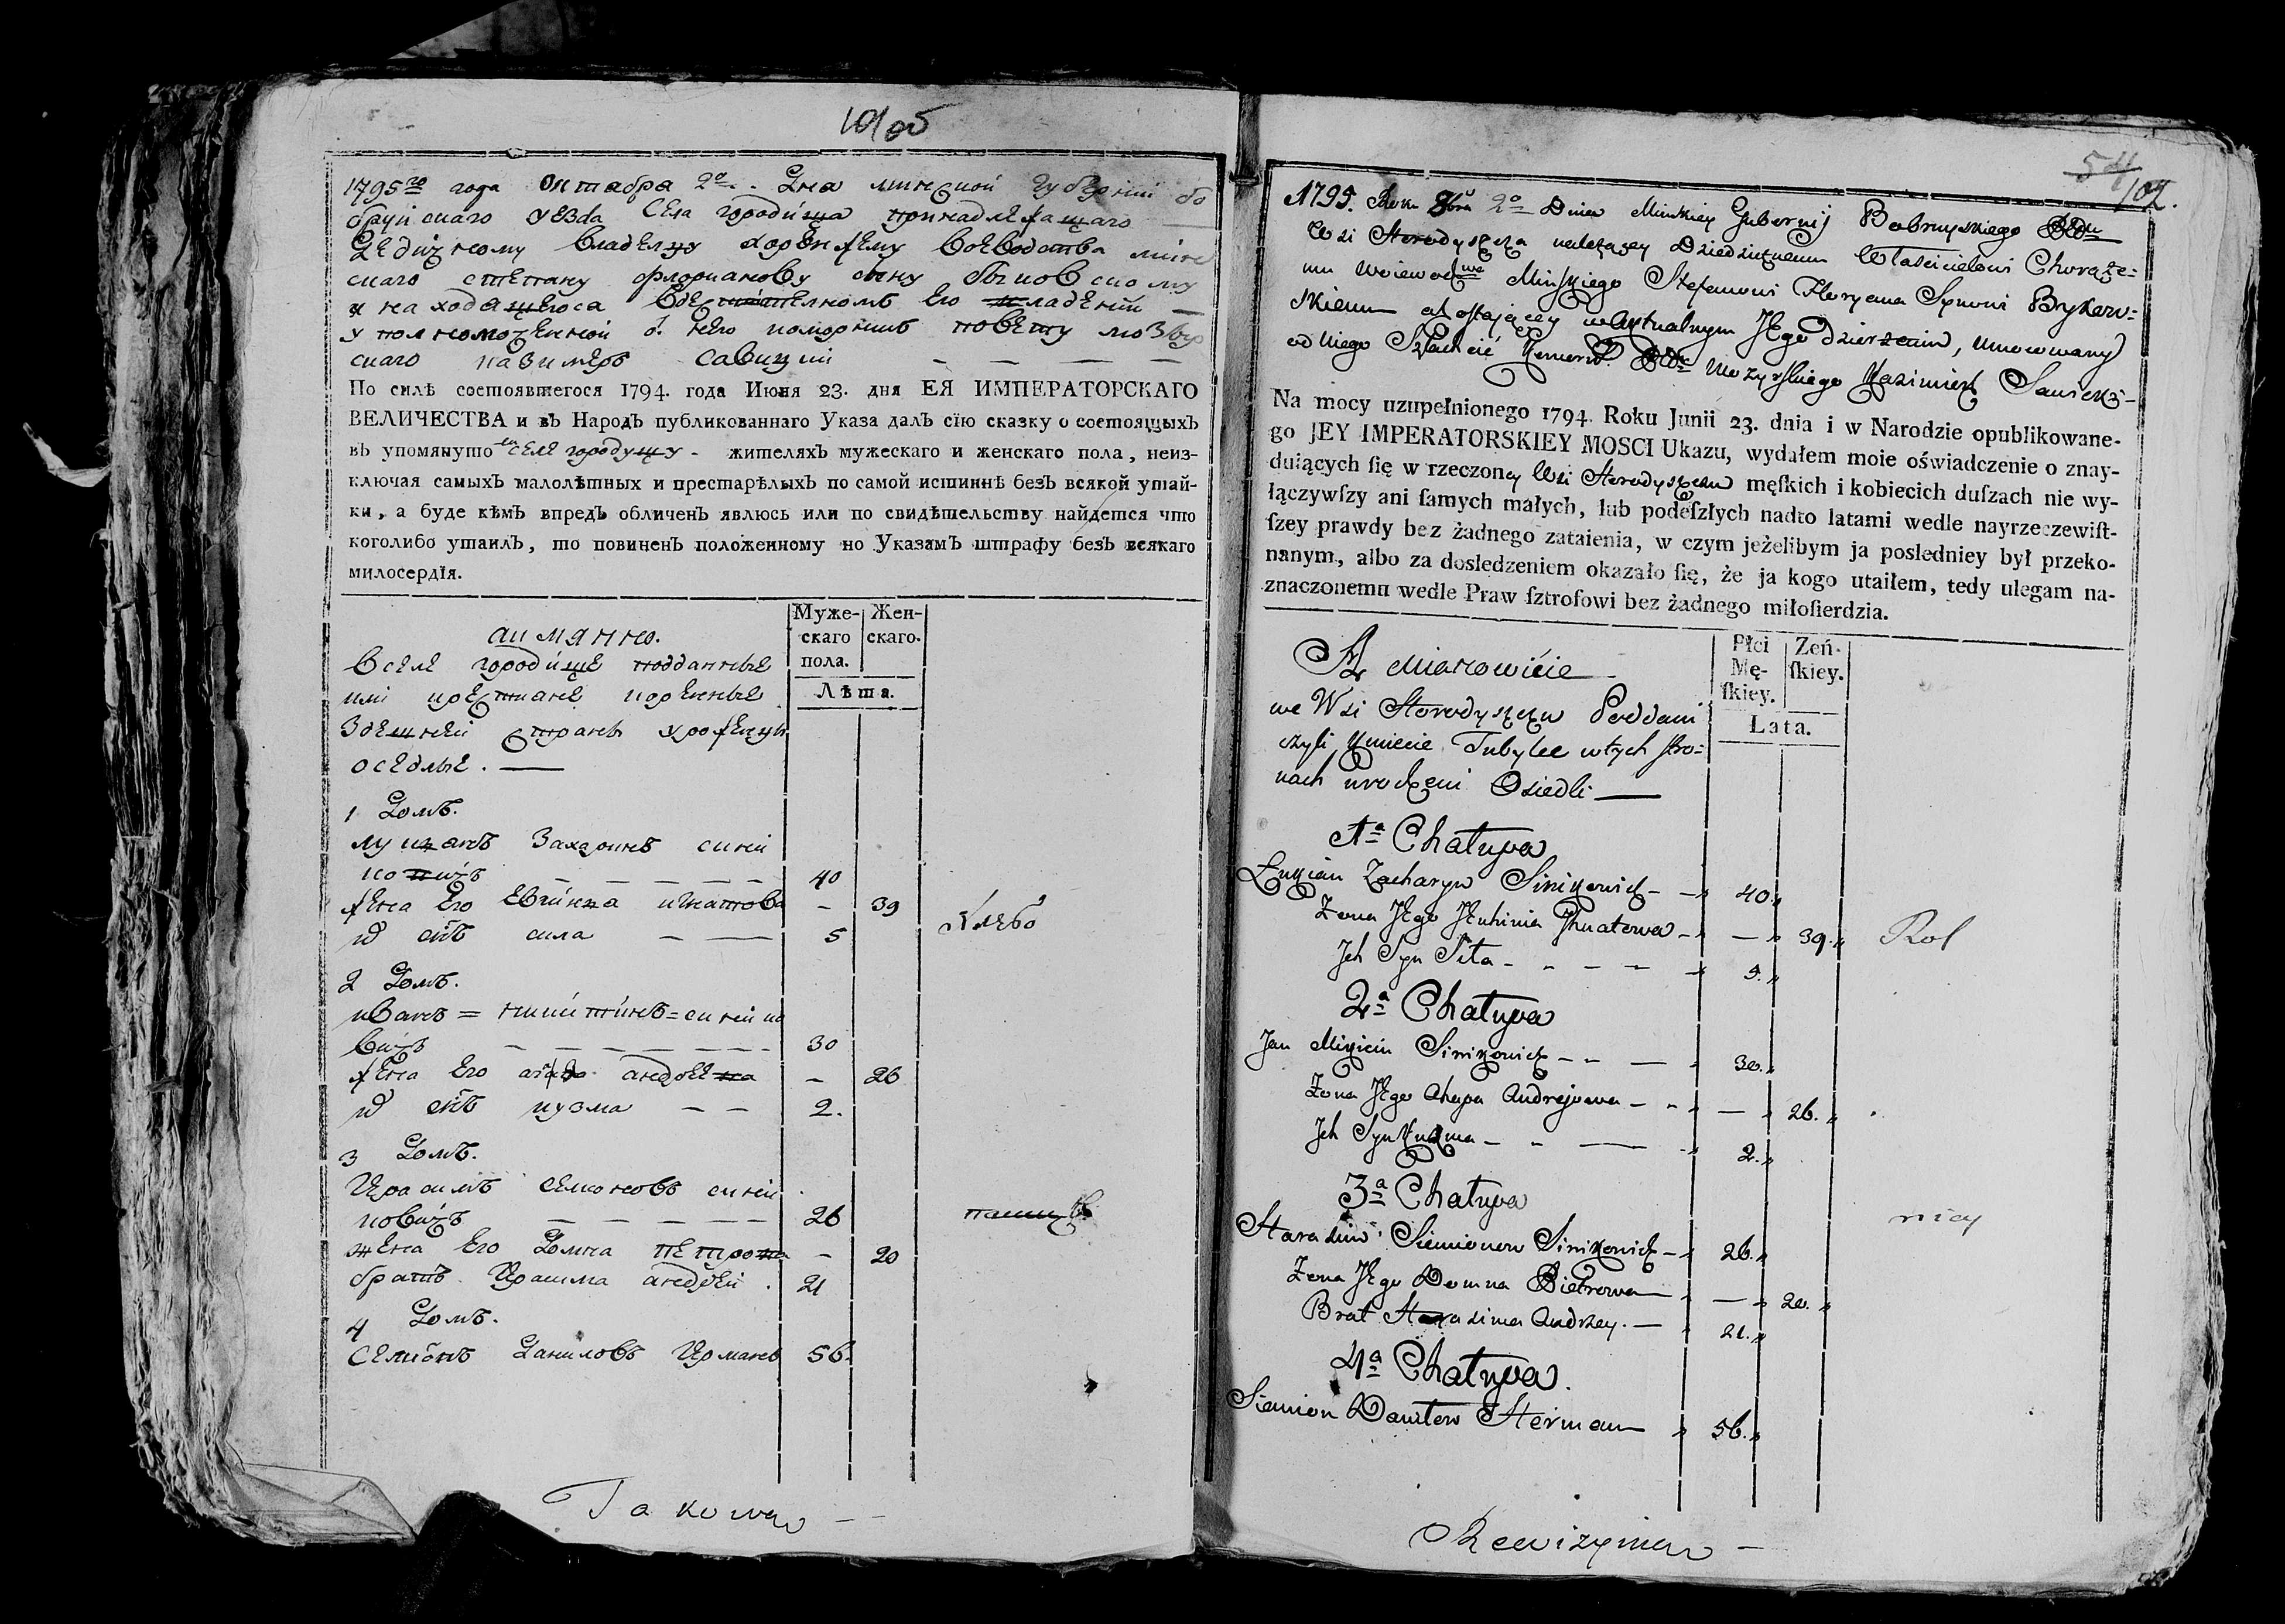 1795го года Октабра 2о Дна минской губернии бо
бруйскаго уезда села городища принадлежащаго
Дедичному владелцу хоронжему воеводства мин
скаго степану флорианову сыну
и находащегося его владении
у полномоченной о него коморникъ повету мозыр
скаго казимеръ савицкий
По силѣ состоявшегося 1794. года Июня 23. дня ЕЯ ИМПЕРАТОРСКАГО
ВЕЛИЧЕСТВА и въ Народъ публикованнаго Указа далъ сїю сказку о состоящыхъ
въ упомянуто селе городищу жителяхъ мужескаго и женскаго пола, неиз-
ключая самыхъ малолѣтных и престарѣлыхъ по самой истиннѣ безъ всякой утай-
ки, а буде кѣмъ впредь обличенъ явлюсь или по свидѣтельству найдется что
коголибо утаилъ, то повиненъ положенному по Указамъ штрафу безъ всякаго
милосердїя.
Муже-
скаго
пола.
Жен-
скаго.
Лѣта.
аимянно.
в селе городище подданные
или крестиане коренные
здешней стране урожонцы
оседлые.
1 Домъ.
лукианъ Захаринъ синки
40
жена его игнатова - 39
их сынъ сила 5
хлебо
2 Домъ.
иванъ = микитинъ = синкио
вичъ 30
жена его андреева - 26
их сынъ кузма 2.
3 Домъ.
Герасимъ семионовъ синки
новичъ 26
жена его Домна петрова - 20
братъ Герасима андрей 21
4 Домъ.
Семионъ Даниловъ Германъ 56.
Takowa
54
102.
1795. Roku 8bra 2o Dnia Minskiey Gubernij Bobruyskiego Pttu
Wsi Horodyszcza należącey Dziedzicznemu Właścicielowi Chorąże=
mu Woiewodtwa Minskiego Stefanowi Floryana Synowi Bykow=
skiemu a zostającey w Aktualnym Jego dzierżeniu, umocowany
od niego Szlachcic Komornik Pttu Mozyrskiego Kazimierz Sawicki
Na mocy uzupełnionego 1794. Roku Junii 23. dnia i w Narodzie opublikowane-
go JEY IMPERATORSKIEY MOSCI Ukazu, wydałem moie oświadczenie o znay-
duiących ſię w rzeczoney Wsi Horodyszczu męſkich i kobiecich duſzach nie wy-
łączywſzy ani ſamych małych, lub podeſzłych nadto latami wedle nayrzeczewiſt-
ſzey prawdy bez żadnego zataienia, w czym jeżelibym ja posledniey był przeko-
nanym, albo za dosledzeniem okazało ſię, że ja kogo utaiłem, tedy ulegam na-
znaczonemu wedle Praw ſztrofowi bez żadnego miłoſierdzia.
Płci
Mę-
ſkiey.
Zeń-
ſkiey.
Lata.
A Mianowicie
we Wsi Horodyszczu Poddani
czyli Kmiecie Tubylce w tych stro=
nach urodzeni Osiedli
1a Chałupa
Łukian Zacharyn Sinkowicz 40
Żona Jego Jeuhinia Ihnatowa 39
Jch Syn Siła 5.
Rol
2a Chałupa
Jan Mikicin Sinkowicz 30.
Żona Jego Ahapa Andrejowa 26.
Jch Syn Kuzma 2.
3a Chałupa
Harasim Siemionow Sinkowicz 26.
Żona Jego Domna Pietrowa 20.
Brat Harasima Andrzey. 21.
nicy
4a Chałupa.
Siemion Daniłow Herman 56.
Rewizyina